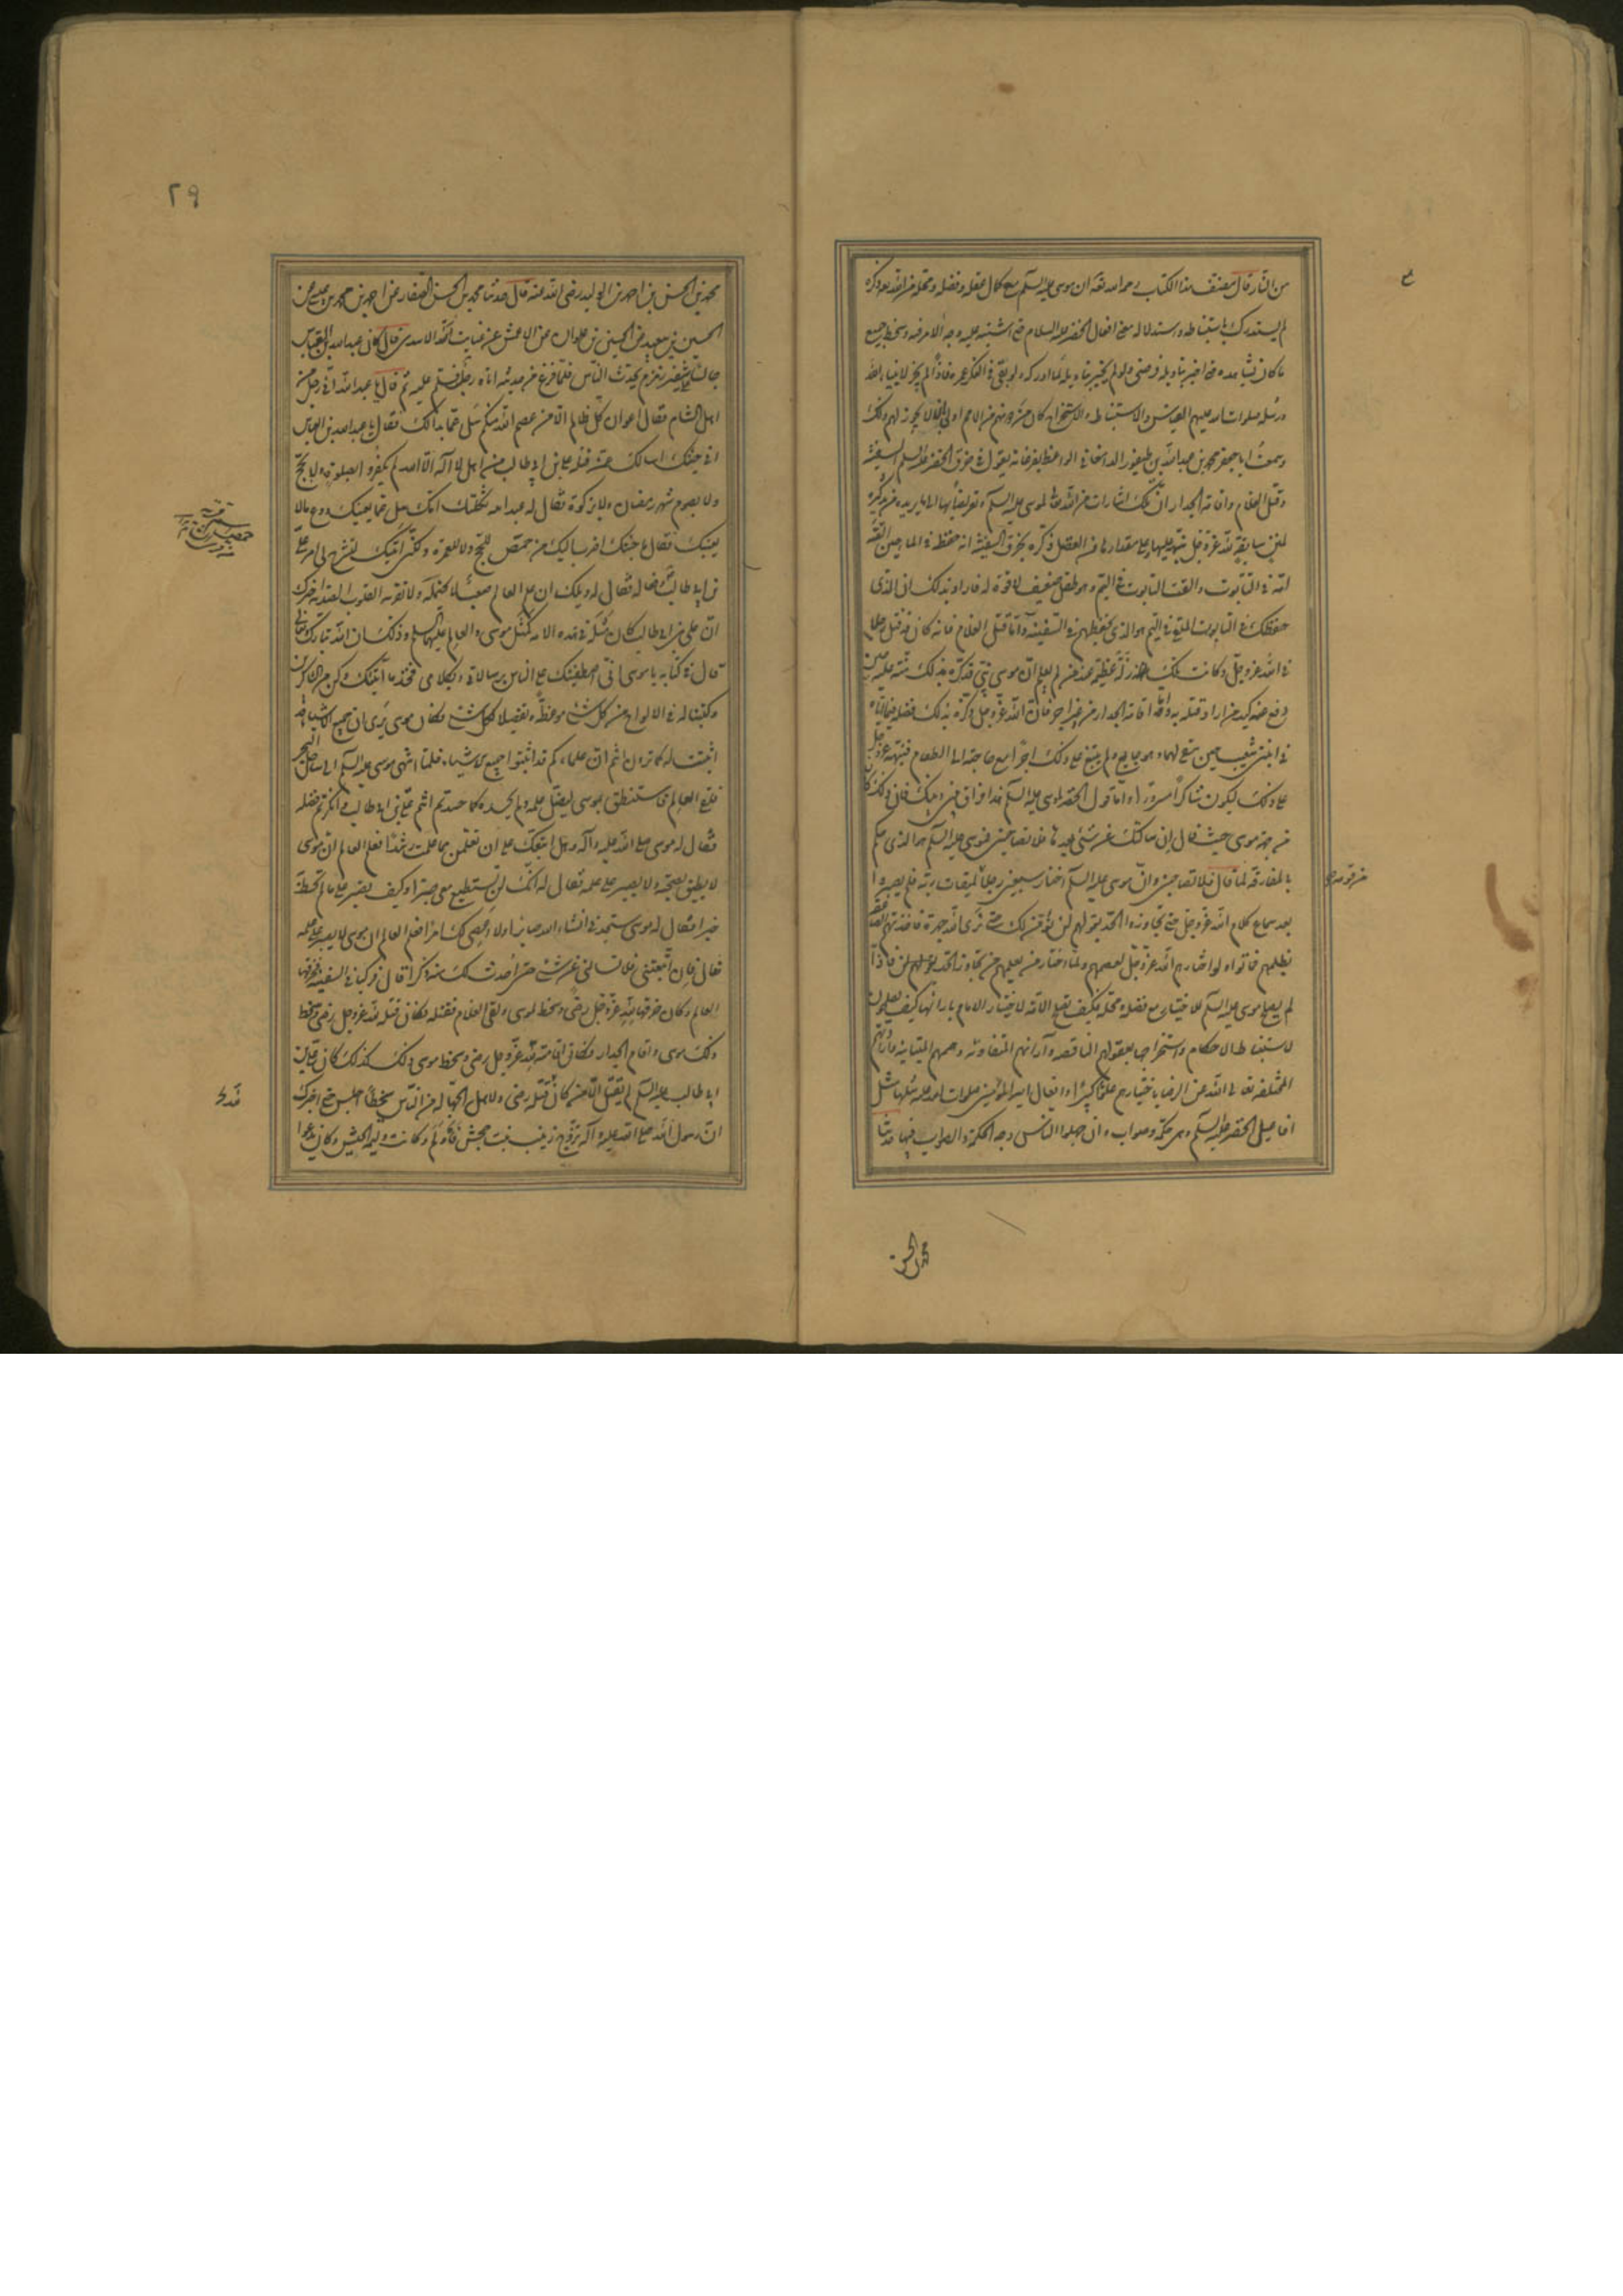 من النار قال مصنف هذا الكتاب رحمه الله تعالى ان موسى عليه السلم مع كمال عقله وفضله ومحله من الله تعه ذكره
لم يستدرك باستنباطه واستدلاله معنى افعال الخضر عليه السلام حتى اشتبه عليه وجه الامر فيه وسخط جميع
ما كان يشاهده حتى اخبر بتاويله فرضى ولو لم يخبر بتاويله لما ادركه ولو بقى فى الفكر عمره فاذا لم يجز لانبياء الله
ورسله صلوات الله عليهم القياس والاستنباط والاستخراج كان من دونهم من الامم اولى بان لا يجوز لهم ذلك
وسمعت ابا جعفر محمد بن عبد الله بن طيفور الدامغانى الواعظ بفرغانة يقول فى خرق الخضر عليه السلم السفينة
وقتل الغلام واقامة الجدار ان تلك اشارات من الله تعالى لموسى عليه السلم وتعريضا بها الى ما يريده من تذكيره
لمنن سابقة لله عز وجل نبهه عليها وعلى مقدارها من الفضل ذكره بخرق السفينة انه حفظه فى الماء حين القته
امه فى التابوت والقت التابوت فى اليم وهو طفل ضعيف لا قوة له فاراد بذلك ان الذى
حفظك فى التابوت الملقى فى اليم هو الذى يحفظهم فى السفينة واما قتل الغلام فانه كان قد قتل رجلا
فى الله عز وجل وكانت تلك زلة عظيمة عند من لم يعلم ان موسى نبى فذكره بذلك منه عليه حين
دفع عنه كيد من اراد قتله به واما اقامة الجدار من غير اجر فان الله عز وجل ذكره بذلك فضله فيما اتاه
فى ابنتى شعيب حين سقى لهما وهو جايع ولم يبتغ على ذلك اجرا مع حاجته الى الطعام فنبهه عز وجل
على ذلك ليكون شاكرا مسرورا واما قول الخضر لموسى عليه السلم هذا فراق بينى وبينك فان ذلك كان
من جهة موسى حيث قال ان سالتك عن شىء بعدها فلا تصاحبنى فموسى عليه السلم هو الذى حكم
بالمفارقة لما قال فلا تصاحبنى وان موسى عليه السلم اختار سبعين رجلا لميقات ربه فلم يصبروا
من قومه
بعد سماع كلام الله عز وجل حتى تجاوزوا الحد بقولهم لن نؤمن لك حتى نرى الله جهرة فاخذتهم الصاعقة
بظلمهم فماتوا ولو اختارهم الله عز وجل لعصمهم ولما اختار من يعلم منهم تجاوز الحد بقولهم لن فاذا
لم يصلح موسى عليه السلم للاختيار مع فضله ومحله فكيف تصلح الامة لاختيار الامام بارائها كيف يصلحون
لاستنباط الاحكام واستخراجها بعقولهم الناقصة وآرائهم المتفاوتة وهممهم المتباينة واراداتهم
المختلفة تعالى الله عن الرضا باختيارهم علوا كبيرا وافعال امير المؤمنين صلوات الله عليه مثلها مثل
افاعيل الخضر عليه السلم وهى حكمة وصواب وان جهلوا الناس وجه الحكمة والصواب فيها حدثنا
محمد بن الحسن
٢٩
محمد بن الحسن بن احمد بن الوليد رضى الله عنه قال حدثنا محمد بن الحسن الصفار عن احمد بن محمد بن عيسى عن
الحسين بن سعيد عن الحسين بن علوان عن الاعمش عن عباية الاسدى قال كان عبد الله بن العباس
جالسا على شفير زمزم يحدث الناس فلما فرغ من حديثه اتاه رجل فسلم عليه ثم قال يا عبد الله انى رجل من
اهل الشام فقال اعوان كل ظالم الا من عصم الله منكم سل عما بدا لك فقال يا عبد الله بن العباس
انى جئتك اسالك عمن قتله على بن ابى طالب من اهل لا اله الا الله لم يكفروا بصلوة ولا بحج
ولا بصوم شهر رمضان ولا بزكوة فقال له عبد الله ثكلتك امك سل عما يعنيك ودع ما لا
يعنيك فقال ما جئتك اضرب اليك من حمص للحج ولا للعمرة ولكنى اتيتك لتشرح لى امر على
بن ابى طالب وفعاله فقال له ويلك ان علم العالم صعب لا تحتمله ولا تقربه القلوب الصدئة اخبرك
ان على بن ابى طالب كان مثله فى هذه الامة كمثل موسى والعالم عليهما السلم وذلك ان الله تبارك وتعالى
قال فى كتابه يا موسى انى اصطفيتك على الناس برسالاتى وبكلامى فخذ ما آتيتك وكن من الشاكرين
وكتبنا له فى الالواح من كل شىء موعظة وتفصيلا لكل شىء فكان موسى يرى ان جميع الاشياء قد
اثبتت له كما ترون انتم ان علماءكم قد اثبتوا جميع الاشياء فلما انتهى موسى عليه السلم الى ساحل البحر
فلقى العالم فاستنطق بموسى ليصل علمه ولم يحسده كما حسدتم انتم على بن ابى طالب وانكرتم فضله
فقال له موسى صلى الله عليه وآله وهل اتبعك على ان تعلمن مما علمت رشدا فعلم العالم ان موسى
لا يطيق بصحبته ولا يصبر على علمه فقال له انك لن تستطيع معى صبرا وكيف تصبر على ما لم تحط به
خبرا فقال له موسى ستجدنى انشاء الله صابرا ولا اعصى لك امرا فعلم العالم ان موسى لا يصبر على علمه
فقال فان اتبعتنى فلا تسالنى عن شىء حتى احدث لك منه ذكرا قال فركبا فى السفينة فخرقها
العالم وكان خرقها لله عز وجل رضى وسخط لموسى ولقى الغلام فقتله فكان قتله لله عز وجل رضى وسخط
ذلك موسى واقام الجدار فكان اقامته لله عز وجل رضى وسخط موسى ذلك كذلك كان على بن
ابى طالب عليه السلم لم يقتل الا من كان قتله رضى ولاهل الجهالة من الناس سخطا اجلس حتى اخبرك
ان رسول الله صلى الله عليه وآله تزوج زينب بنت جحش فاولم وكانت وليمته الحيس وكان يدعو